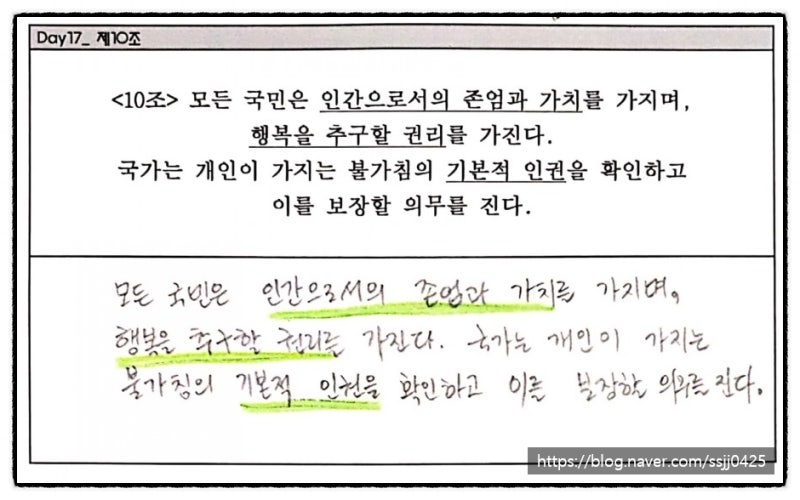 Day17_ 제10조
<10조> 모든 국민은 인간으로서의 존엄과 가치를 가지며,
행복을 추구할 권리를 가진다.
국가는 개인이 가지는 불가침의 기본적 인권을 확인하고
이를 보장할 의무를 진다.
모든 국민은 인간으로서의 존엄과 가치를 가지며,
행복을 추구할 권리를 가진다. 국가는 개인이 가지는
불가침의 기본적 인권을 확인하고 이를 보장할 의무를 진다.
https://blog.naver.com/ssjj0425